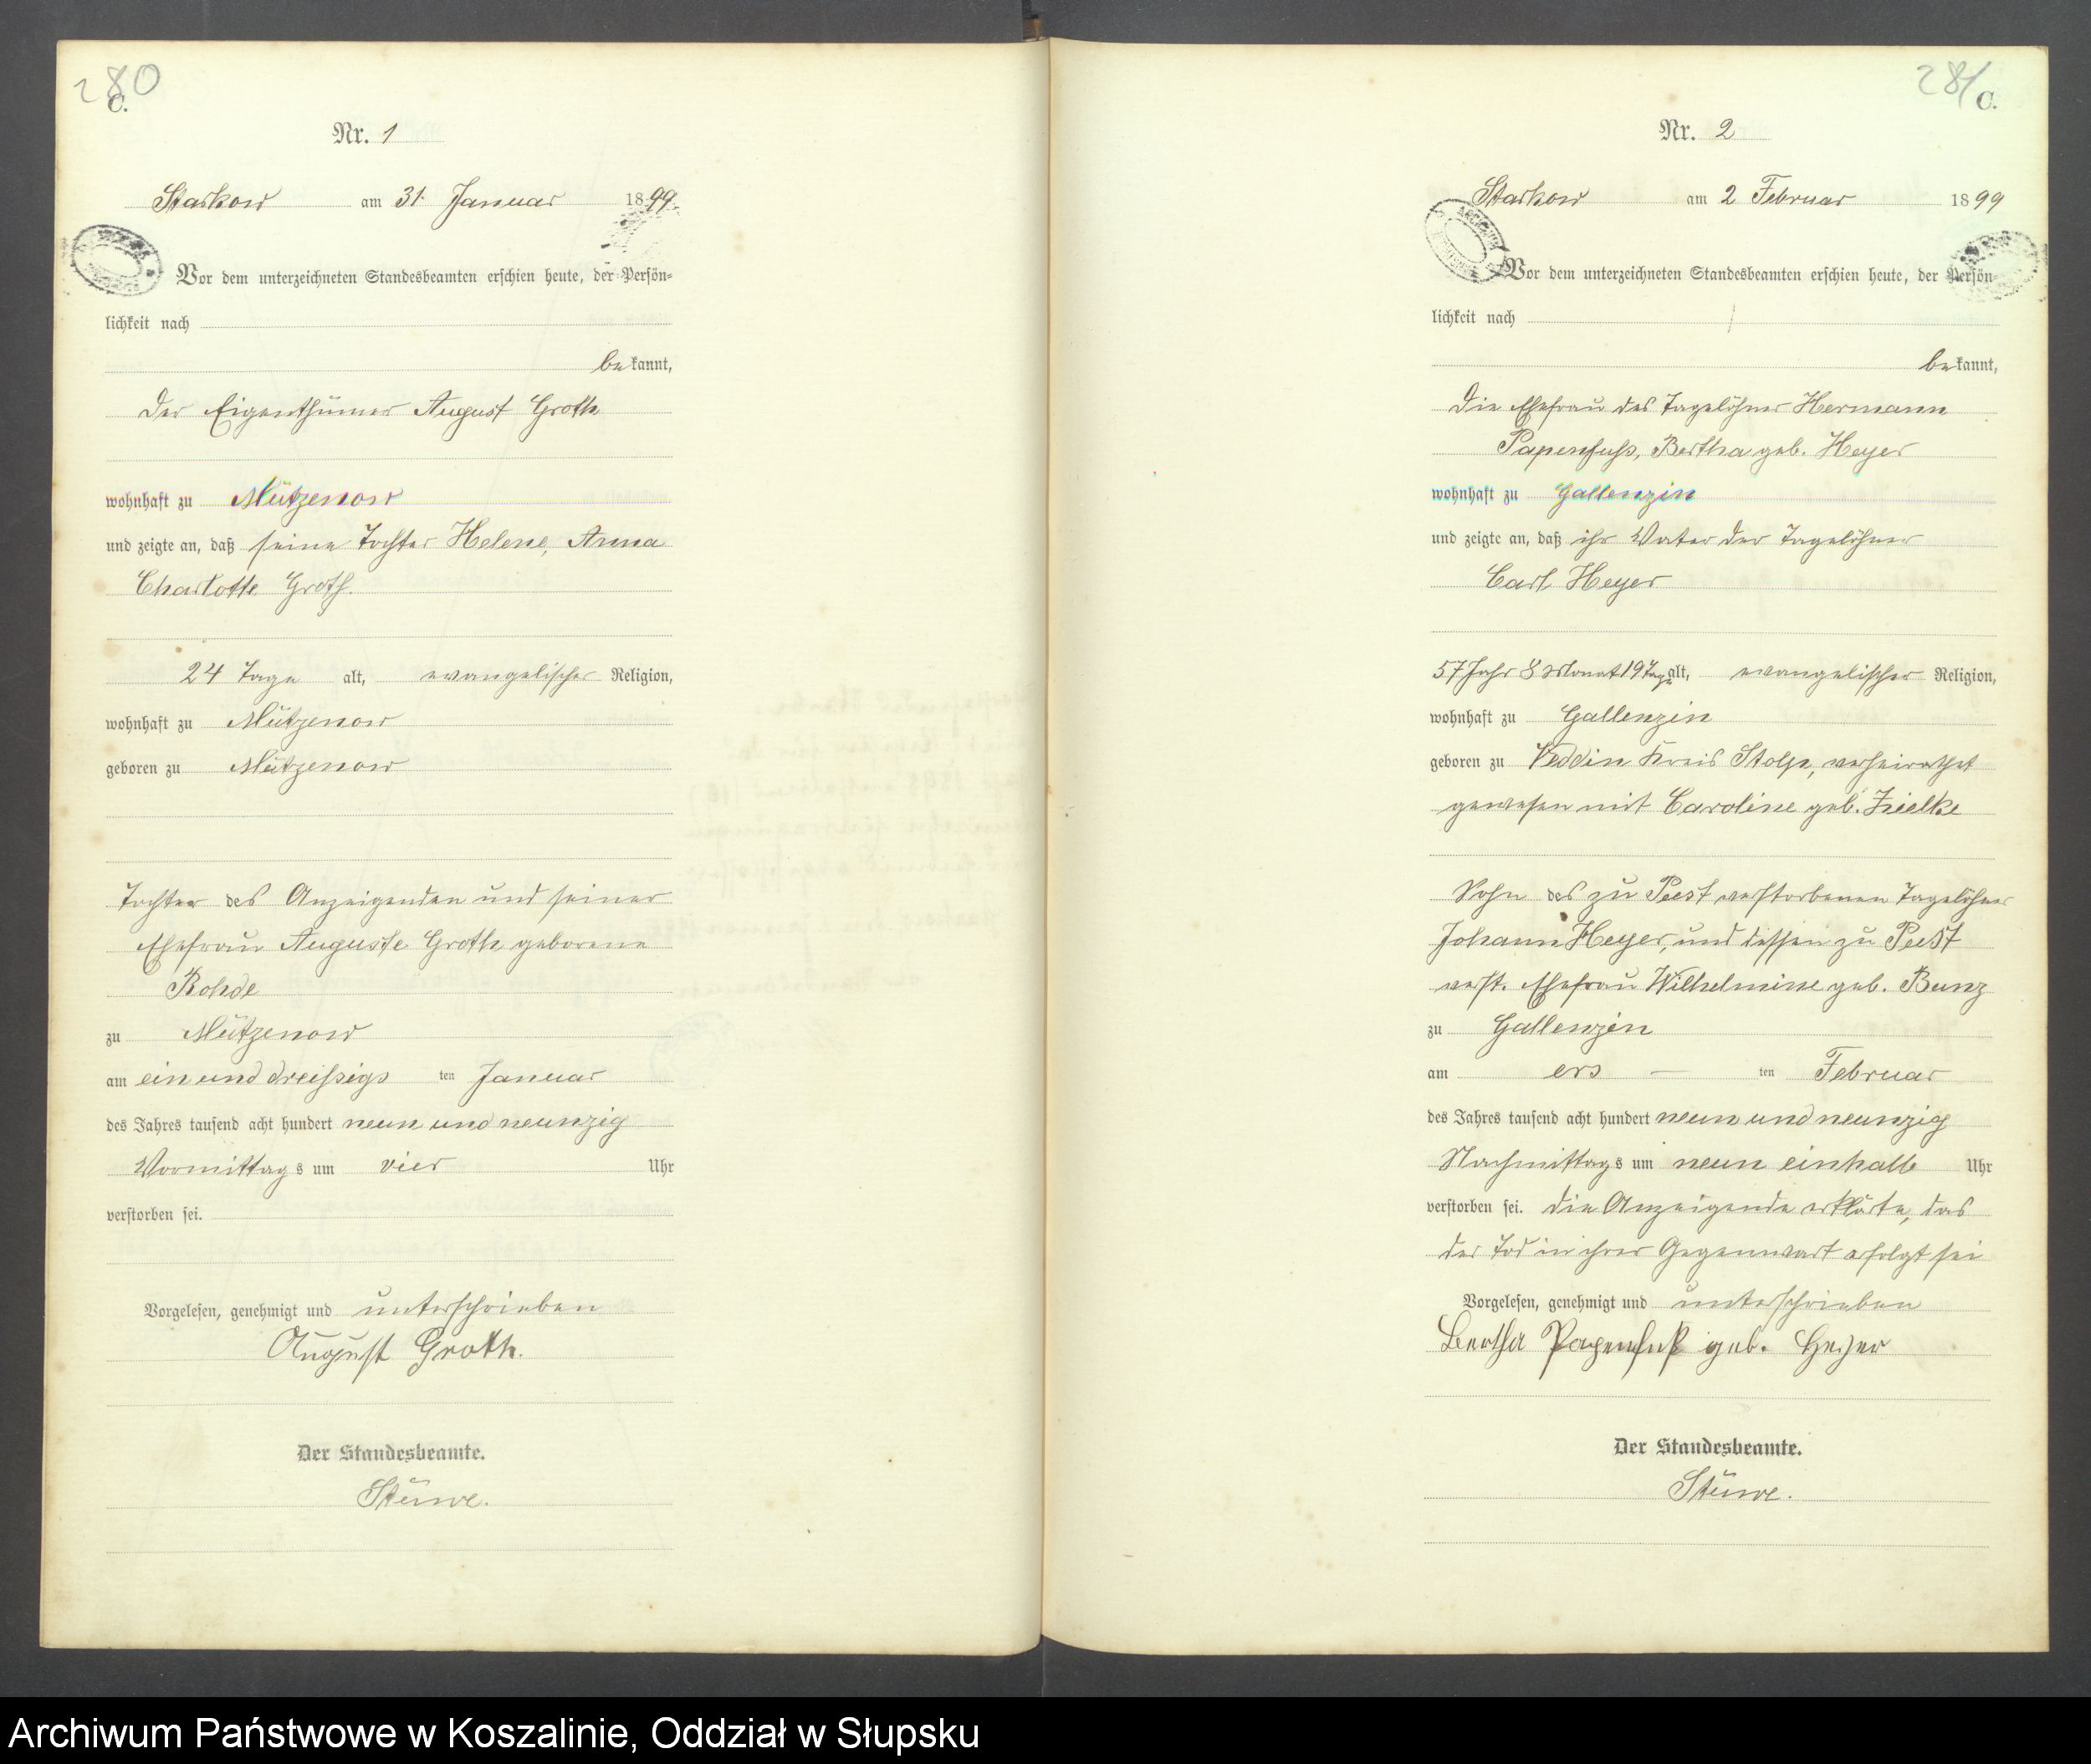 280
C.
Nr. 1
Starkow am 31. Januar 1899.
Vor dem unterzeichneten Standesbeamten erschien heute, der Persön-
lichkeit nach
bekannt,
der Eigenthümer August Groth
wohnhaft zu Mützenow
und zeigte an, daß seine Tochter Helene, Anna
Charlotte Groth.
24 Tage alt, evangelischer Religion,
wohnhaft zu Mützenow
geboren zu Mützenow
Tochter des Anzeigenden und seiner
Ehefrau Auguste Groth geborene
Rohde
zu Mützenow
am ein und dreißigsten Januar
des Jahres tausend acht hundert neun und neunzig
Vormittags um vier Uhr
verstorben sei.
Vorgelesen, genehmigt und unterschrieben
August Groth.
Der Standesbeamte.
Stüwe.
281
C.
Nr. 2
Starkow am 2 Februar 1899
Vor dem unterzeichneten Standesbeamten erschien heute, der Persön-
lichkeit nach
bekannt,
die Ehefrau des Tagelöhner Hermann
Papenfuß, Bertha geb. Heyer
wohnhaft zu Gallenzin
und zeigte an, daß ihr Vater der Tagelöhner
Carl Heyer
57 Jahr 8 Monat 19 Tage alt, evangelischer Religion,
wohnhaft zu Gallenzin
geboren zu Veddin Kreis Stolp, verheirathet
gewesen mit Caroline geb. Zielke
Sohn des zu Peest verstorbenen Tagelöhner
Johann Heyer, und dessen zu Peest
verst. Ehefrau Wilhelmine geb. Bunz
zu Gallenzin
am ers — ten Februar
des Jahres tausend acht hundert neun und neunzig
Nachmittags um neun einhalb Uhr
verstorben sei. Die Anzeigende erklärte, das
der Tod in ihrer Gegenwart erfolgt sei
Vorgelesen, genehmigt und unterschrieben
Bertha Papenfuß geb. Heyer
Der Standesbeamte.
Stüwe.
Archiwum Państwowe w Koszalinie, Oddział w Słupsku